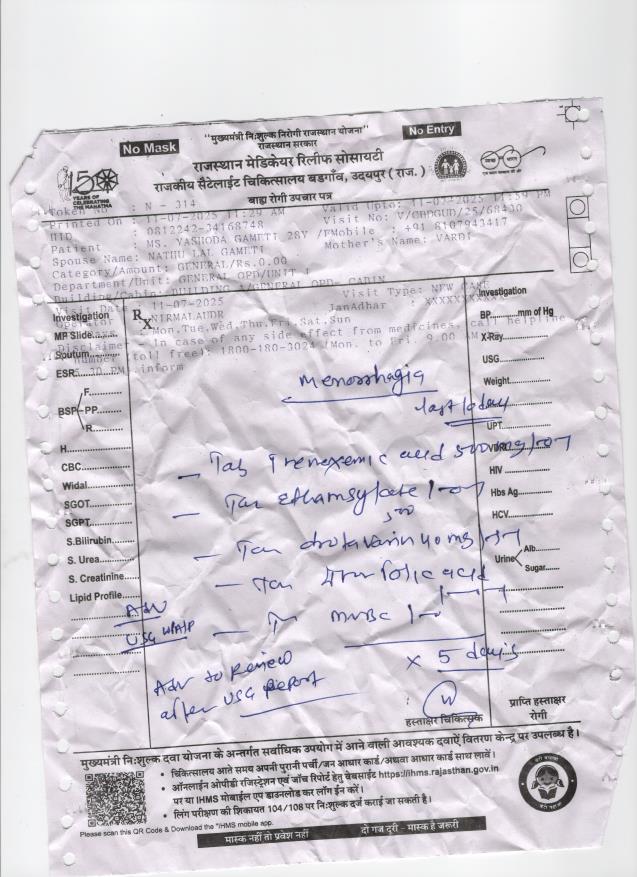 "मुख्यमंत्री निःशुल्क निरोगी राजस्थान योजना"
No Mask
No Entry
राजस्थान सरकार
राजस्थान मेडिकेयर रिलीफ सोसायटी
राजकीय सैटेलाईट चिकित्सालय बडगाँव, उदयपुर ( राज. )
बाह्य रोगी उपचार पत्र
150
YEARS OF
CELEBRATING
THE MAHATMA
Token No : N - 314
Printed On : 11-07-2025 11:29 AM Valid Upto: 11-07-2025 11:59 PM
HID : 0812242-34168748 Visit No: V/GHDGUD/25/68430
Patient : MS. YASHODA GAMETI 28Y /F Mobile : +91 8107943417
Spouse Name: NATHU LAL GAMETI Mother's Name: VARDI
Category/Amount: GENERAL/Rs.0.00
Department/Unit: GENERAL OPD/UNIT 1
Date : 11-07-2025 Visit Type: NEW CASE
NIRMALAUDR JanAadhar :
Mon,Tue,Wed,Thu,Fri,Sat,Sun
In case of any side effect from medicines, call helpline
number (toll free): 1800-180-3024 /Mon. to Fri. 9.00 AM
inform
Rx
Investigation
MP Slide
Sputum
ESR
BSP
F
PP
R
H
CBC
Widal
SGOT
SGPT
S.Bilirubin
S. Urea
S. Creatinine
Lipid Profile
Menorrhagia
last 10 day
- Tab Trenexemic acid 500mg
- Tab ethamsylate
500
- Tab drotavarin 40mg
- Tab folic acid
- MVBC
x 5 days
Adv
USG W/A/P
Adv to Review
after USG Report
Investigation
BP mm of Hg
X-Ray
USG
Weight
UPT
VDRL
HIV
Hbs Ag
HCV
Urine
Alb
Sugar
हस्ताक्षर चिकित्सक
प्राप्ति हस्ताक्षर
रोगी
मुख्यमंत्री निःशुल्क दवा योजना के अन्तर्गत सर्वाधिक उपयोग में आने वाली आवश्यक दवाऐं वितरण केन्द्र पर उपलब्ध है।
• चिकित्सालय आते समय अपनी पुरानी पर्ची/जन आधार कार्ड/अथवा आधार कार्ड साथ लावें।
• ऑनलाईन ओपीडी रजिस्ट्रेशन एवं जॉच रिपोर्ट हेतु वेबसाईट https://ihms.rajasthan.gov.in
पर या IHMS मोबाईल एप डाउनलोड कर लॉग ईन करें।
• लिंग परीक्षण की शिकायत 104/108 पर निःशुल्क दर्ज कराई जा सकती है।
Please scan this QR Code & Download the "IHMS mobile app.
मास्क नहीं तो प्रवेश नहीं
दो गज दूरी - मास्क है जरूरी